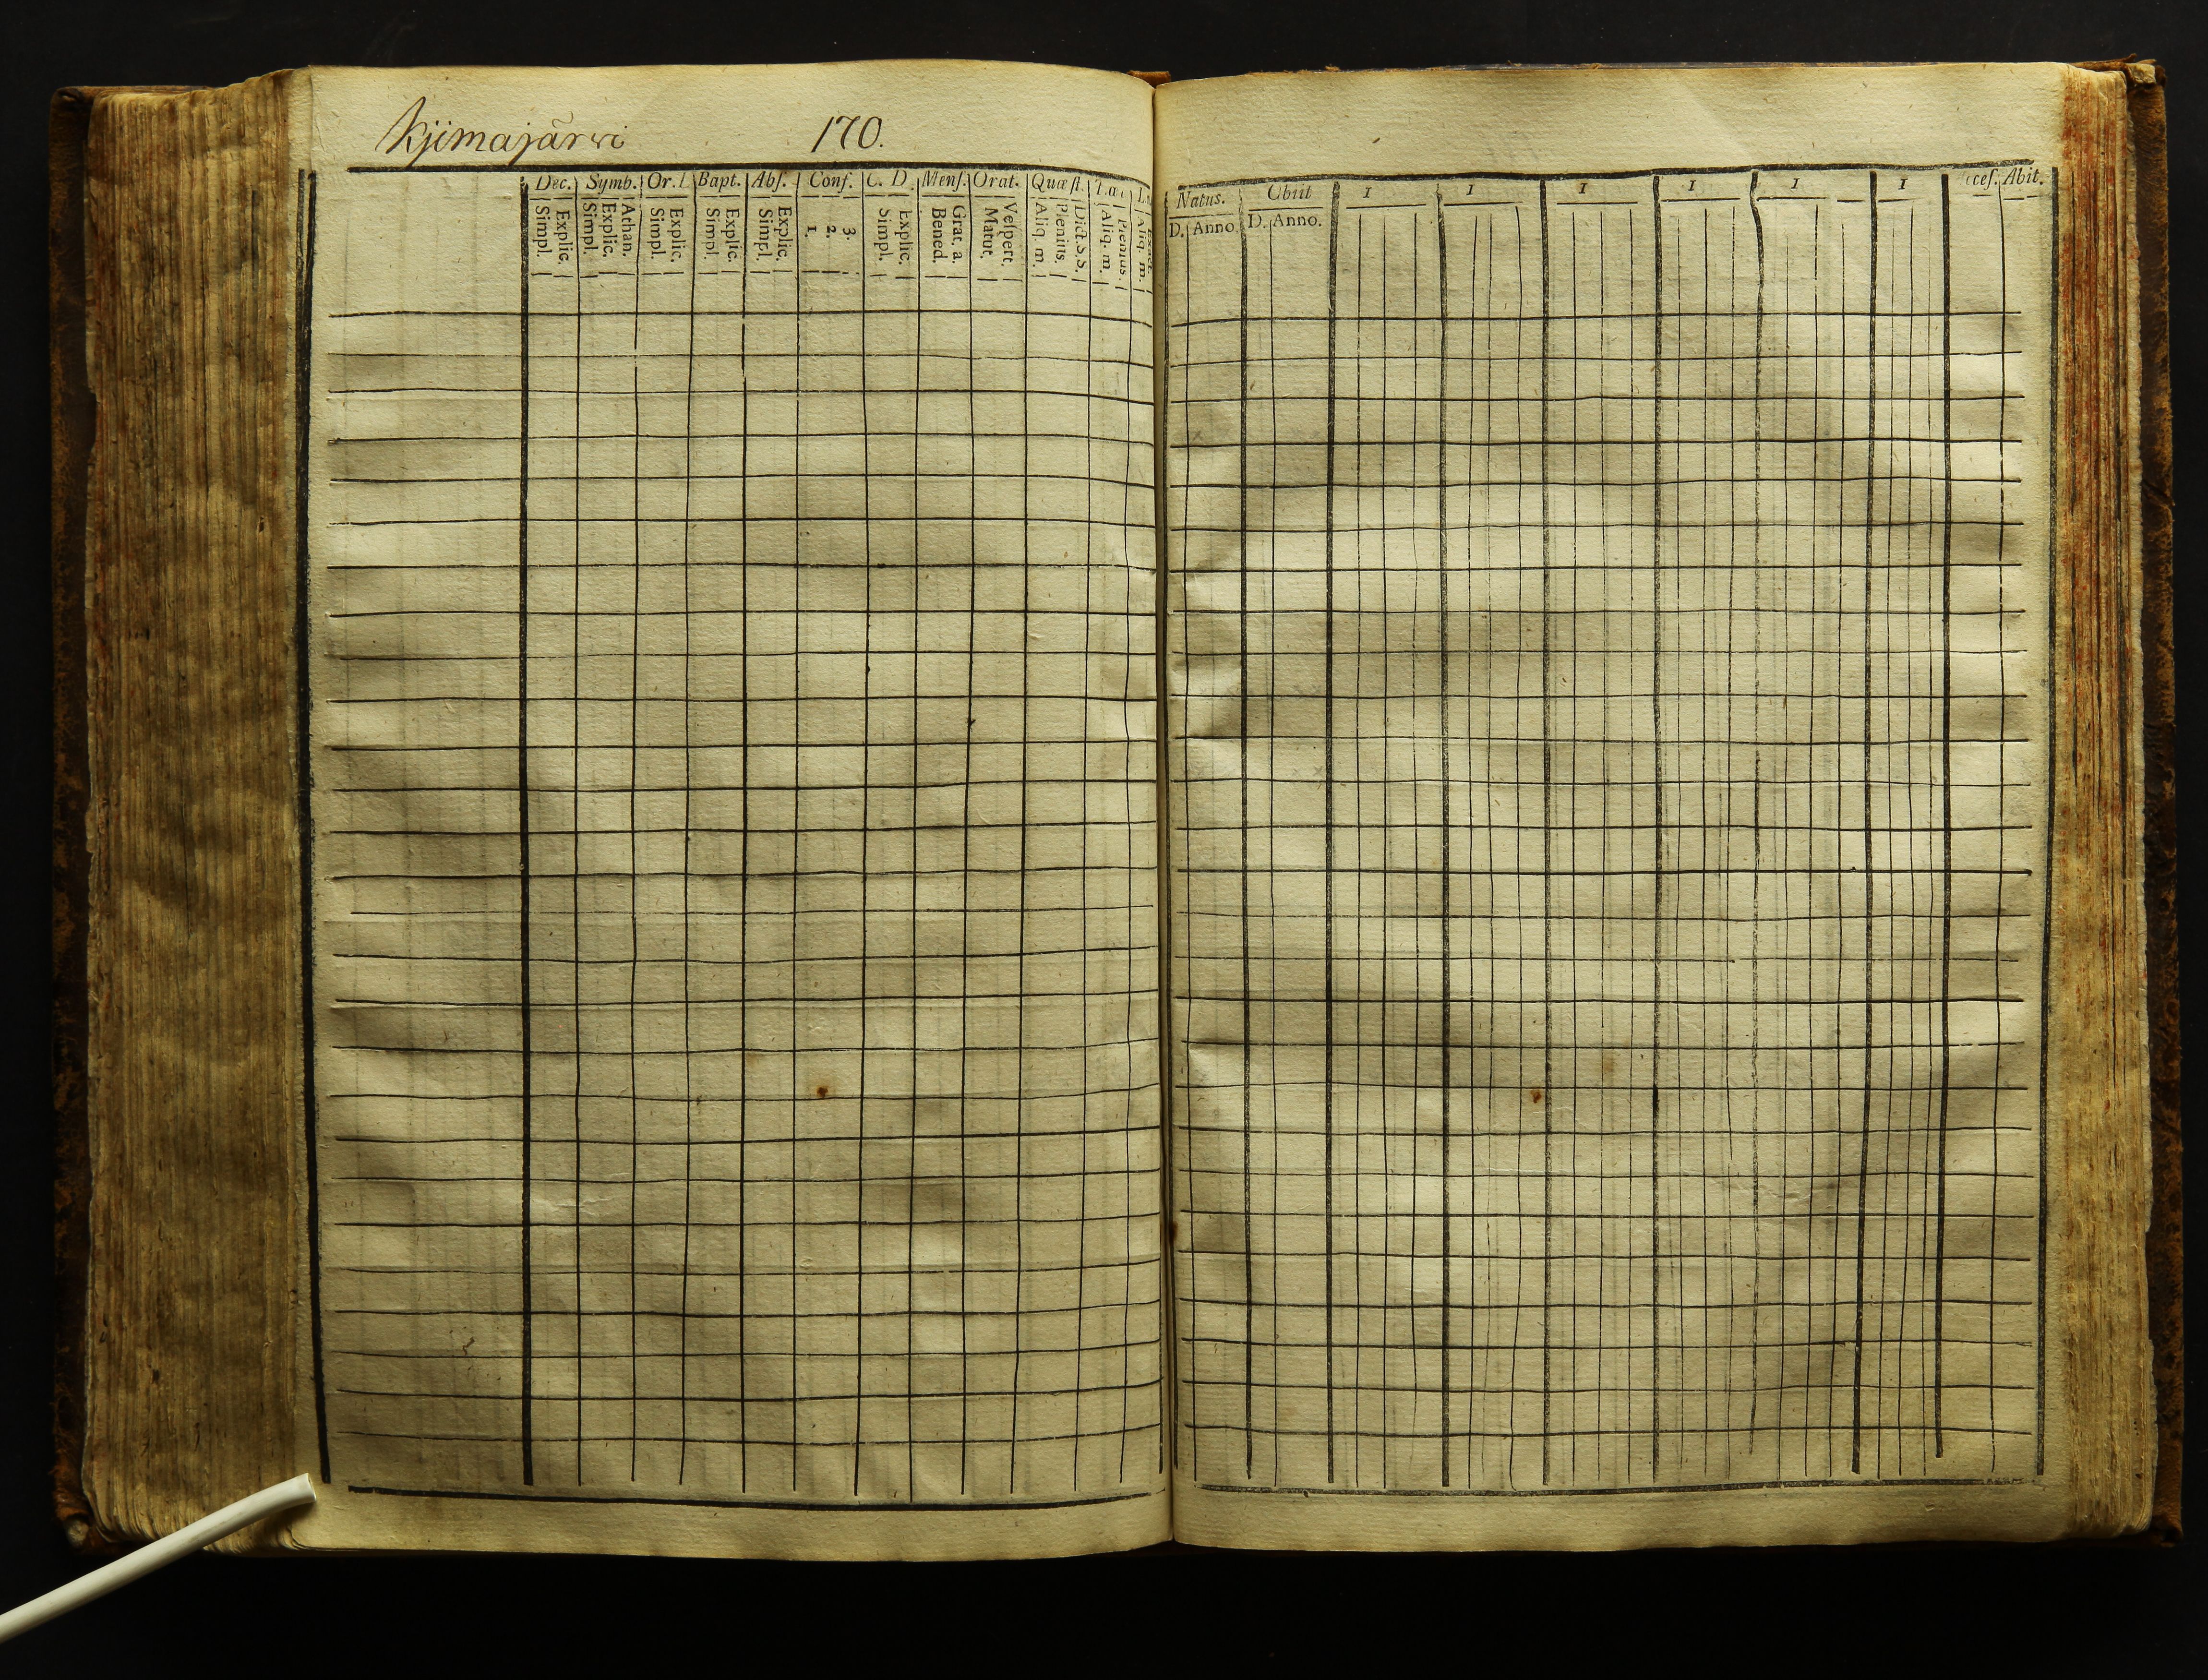 Kjimajärvi 170.
Dec. Symb. Or. L Bapt. Abs. Conf. C. D. Mens. Orat. Quæst. Ta
Explic. Simpl. Athan. Explic. Simpl. Explic. Simpl. Explic. Simpl. Explic. Simpl. 3. 2. 1. Explic. Simpl. Grat. a. Bened. Vespert. Matut. Dict. S. S. Plenius. Aliq. m. Plenius. Aliq. m. Aliq. m.
Natus. Obiit I I I I I I Abit.
D. Anno. D. Anno.